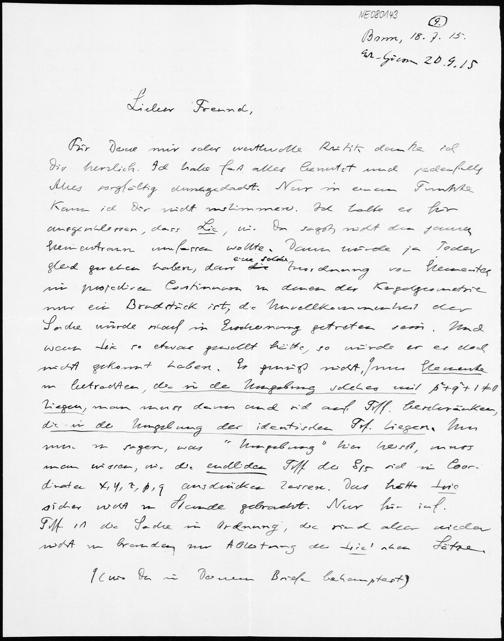 NE080143
9.
Bonn, 18. 7. 15.
20. 9. 15
Lieber Freund,
Für Deine mir sehr wertvolle Kritik danke ich
Dir herzlich. Ich habe fast alles benutzt und jedenfalls
Alles sorgfältig durchgedacht. Nur in einem Punkte
kann ich Dir nicht zustimmen. Ich halte es für
ausgeschlossen, dass Lie, wie Du sagst, nicht den ganzen
Elementraum umfassen wollte. Dann würde ja Jeder
gleich gesehen haben, dass eine solche die Zuordnung von Elementen
im projectiven Continuum in denen der Kugelgeometrie
nur ein Bruchstück ist, die Unvollkommenheit der
Sache würde scharf in Erscheinung getreten sein. Und
wenn Lie so etwas gewollt hätte, so würde er es doch
nicht gekonnt haben. Es genügt nicht, nur Elemente
zu betrachten, die in der Umgebung solches mit p²+q²+1≠0
liegen, man muss dann auch sich auf Tff. beschränken,
die in der Umgebung der identischen Tf. liegen. Um
nun zu sagen, was "Umgebung" hier heisst, muss
man wissen, wie die endlichen Tff der sich in Coor-
dinaten x, y, z, p, q ausdrücken lassen. Das hätte Lie
sicher nicht zu Stande gebracht. Nur für inf.
Tff ist die Sache in Ordnung, die sind aber wieder
nicht zu brauchen zur Ableitung der Lie'schen Sätze.
(was Du in Deinem Briefe behauptest)